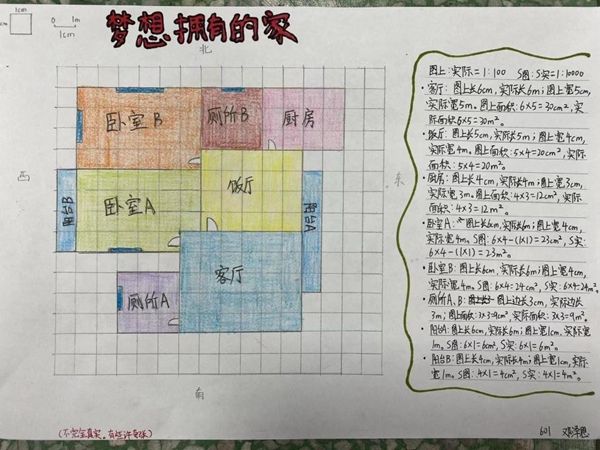 1cm
1cm
0 1m
1cm
梦想拥有的家
北
西
东
南
卧室B
厕所B
厨房
阳台B
卧室A
饭厅
阳台A
厕所A
客厅
图上:实际=1:100 S图:S实=1:10000
·客厅:图上长6cm,实际长6m;图上宽5cm,
实际宽5m。图上面积:6×5=30cm²,实
际面积6×5=30m²。
·饭厅:图上长5cm,实际长5m;图上宽4cm,
实际宽4m。图上面积:5×4=20cm²,实际
面积:5×4=20m²。
·厨房:图上长4cm,实际长4m;图上宽3cm,
实际宽3m。图上面积:4×3=12cm²,实际
面积:4×3=12m²。
·卧室A:图上长6cm,实际长6m;图上宽4cm,
实际宽4m。S图:6×4-(1×1)=23cm²,S实:
6×4-(1×1)=23m²。
·卧室B:图上长6cm,实际长6m;图上宽4cm,
实际宽4m。S图:6×4=24cm²,S实:6×4=24m²。
·厕所A、B:图上边长3cm,实际边长
3m;图上面积:3×3=9cm²,实际面积:3×3=9m²。
·阳台A:图上长6cm,实际长6m;图上宽1cm,实际宽
1m。S图:6×1=6cm²,S实:6×1=6m²。
·阳台B:图上长4cm,实际长4m;图上宽1cm,实际
宽1m。S图:4×1=4cm²,S实:4×1=4m²。
(不完全真实,有些许夸张)
601